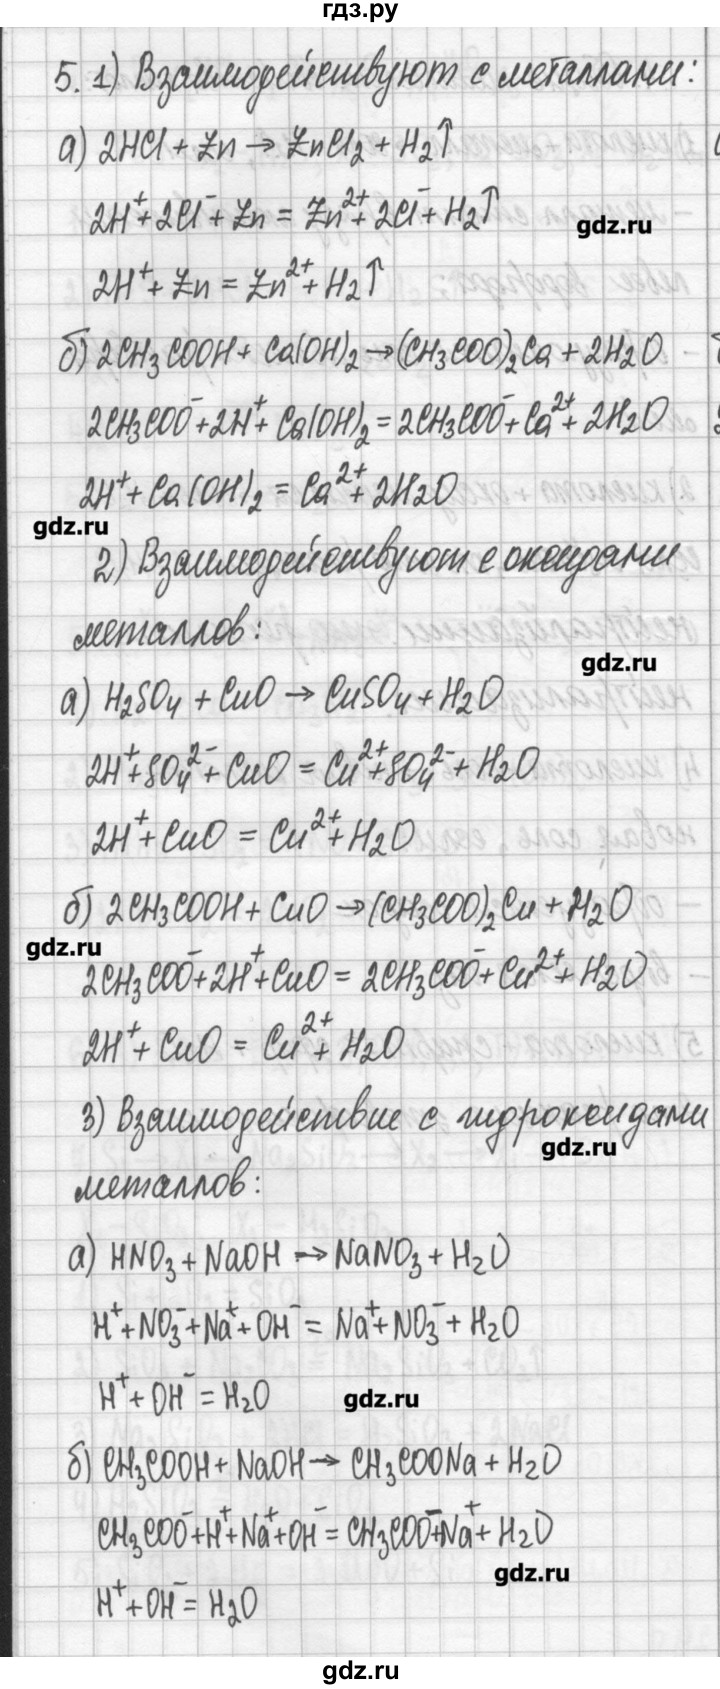 гдз.ру
5. 1) Взаимодействуют с металлами:
а) 2HCl + Zn → ZnCl₂ + H₂↑
2H⁺ + 2Cl⁻ + Zn = Zn²⁺ + 2Cl⁻ + H₂↑
gdz.ru
2H⁺ + Zn = Zn²⁺ + H₂↑
б) 2CH₃COOH + Ca(OH)₂ → (CH₃COO)₂Ca + 2H₂O
2CH₃COO⁻ + 2H⁺ + Ca(OH)₂ = 2CH₃COO⁻ + Ca²⁺ + 2H₂O
2H⁺ + Ca(OH)₂ = Ca²⁺ + 2H₂O
gdz.ru
2) Взаимодействуют с оксидами
металлов:
gdz.ru
а) H₂SO₄ + CuO → CuSO₄ + H₂O
2H⁺ + SO₄²⁻ + CuO = Cu²⁺ + SO₄²⁻ + H₂O
2H⁺ + CuO = Cu²⁺ + H₂O
б) 2CH₃COOH + CuO → (CH₃COO)₂Cu + H₂O
gdz.ru
2CH₃COO⁻ + 2H⁺ + CuO = 2CH₃COO⁻ + Cu²⁺ + H₂O
2H⁺ + CuO = Cu²⁺ + H₂O
3) Взаимодействие с гидроксидами
gdz.ru
металлов:
а) HNO₃ + NaOH → NaNO₃ + H₂O
H⁺ + NO₃⁻ + Na⁺ + OH⁻ = Na⁺ + NO₃⁻ + H₂O
H⁺ + OH⁻ = H₂O
gdz.ru
б) CH₃COOH + NaOH → CH₃COONa + H₂O
CH₃COO⁻ + H⁺ + Na⁺ + OH⁻ = CH₃COO⁻ + Na⁺ + H₂O
gdz.ru
H⁺ + OH⁻ = H₂O
gdz.ru